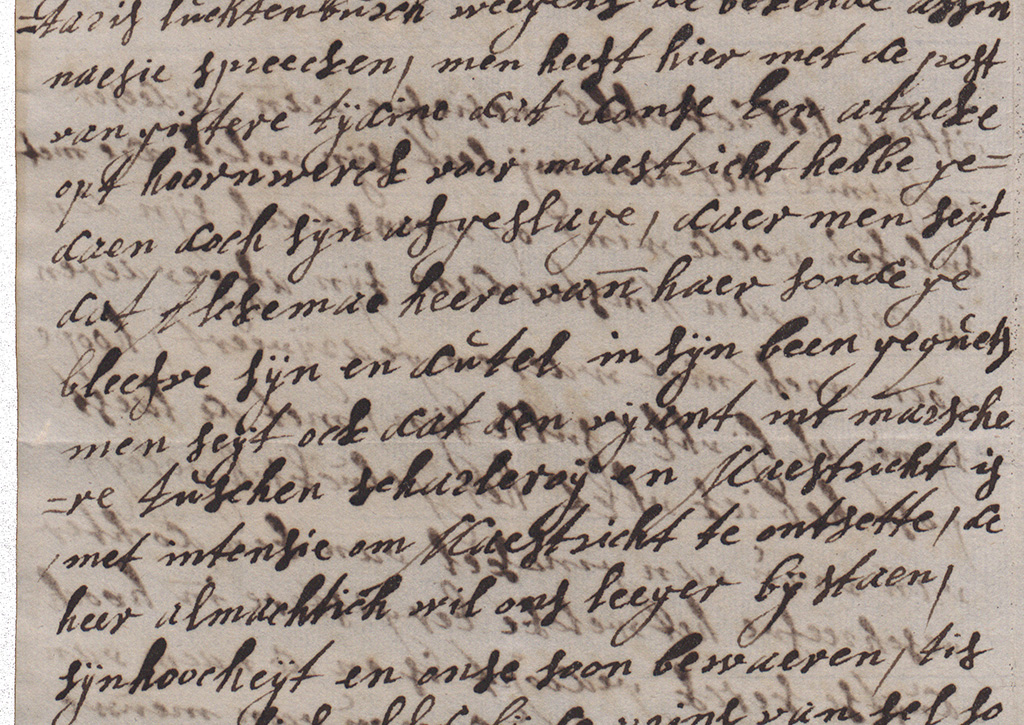 =taris luchtenbursch weegens de bekende assin
naesie spreecken, men heeft hier met de post
van gistere tijdino dat donse een atacke
opt hoornwerck voor maestricht hebbe ge=
daen doch sijn afgeslage, daer men seijt
dat heere van haer soude ge
bleefve sijn en dutel in sijn been gequets
men seijt ock dat den vijant int marsche
=re tuschen scharleroij en Maestricht is
met intensie om Maestricht te ontsette, de
heer almachtich wil ons leeger bij staen,
sijnhoocheijt en onse soon bewaeren, tis
prins van sel so